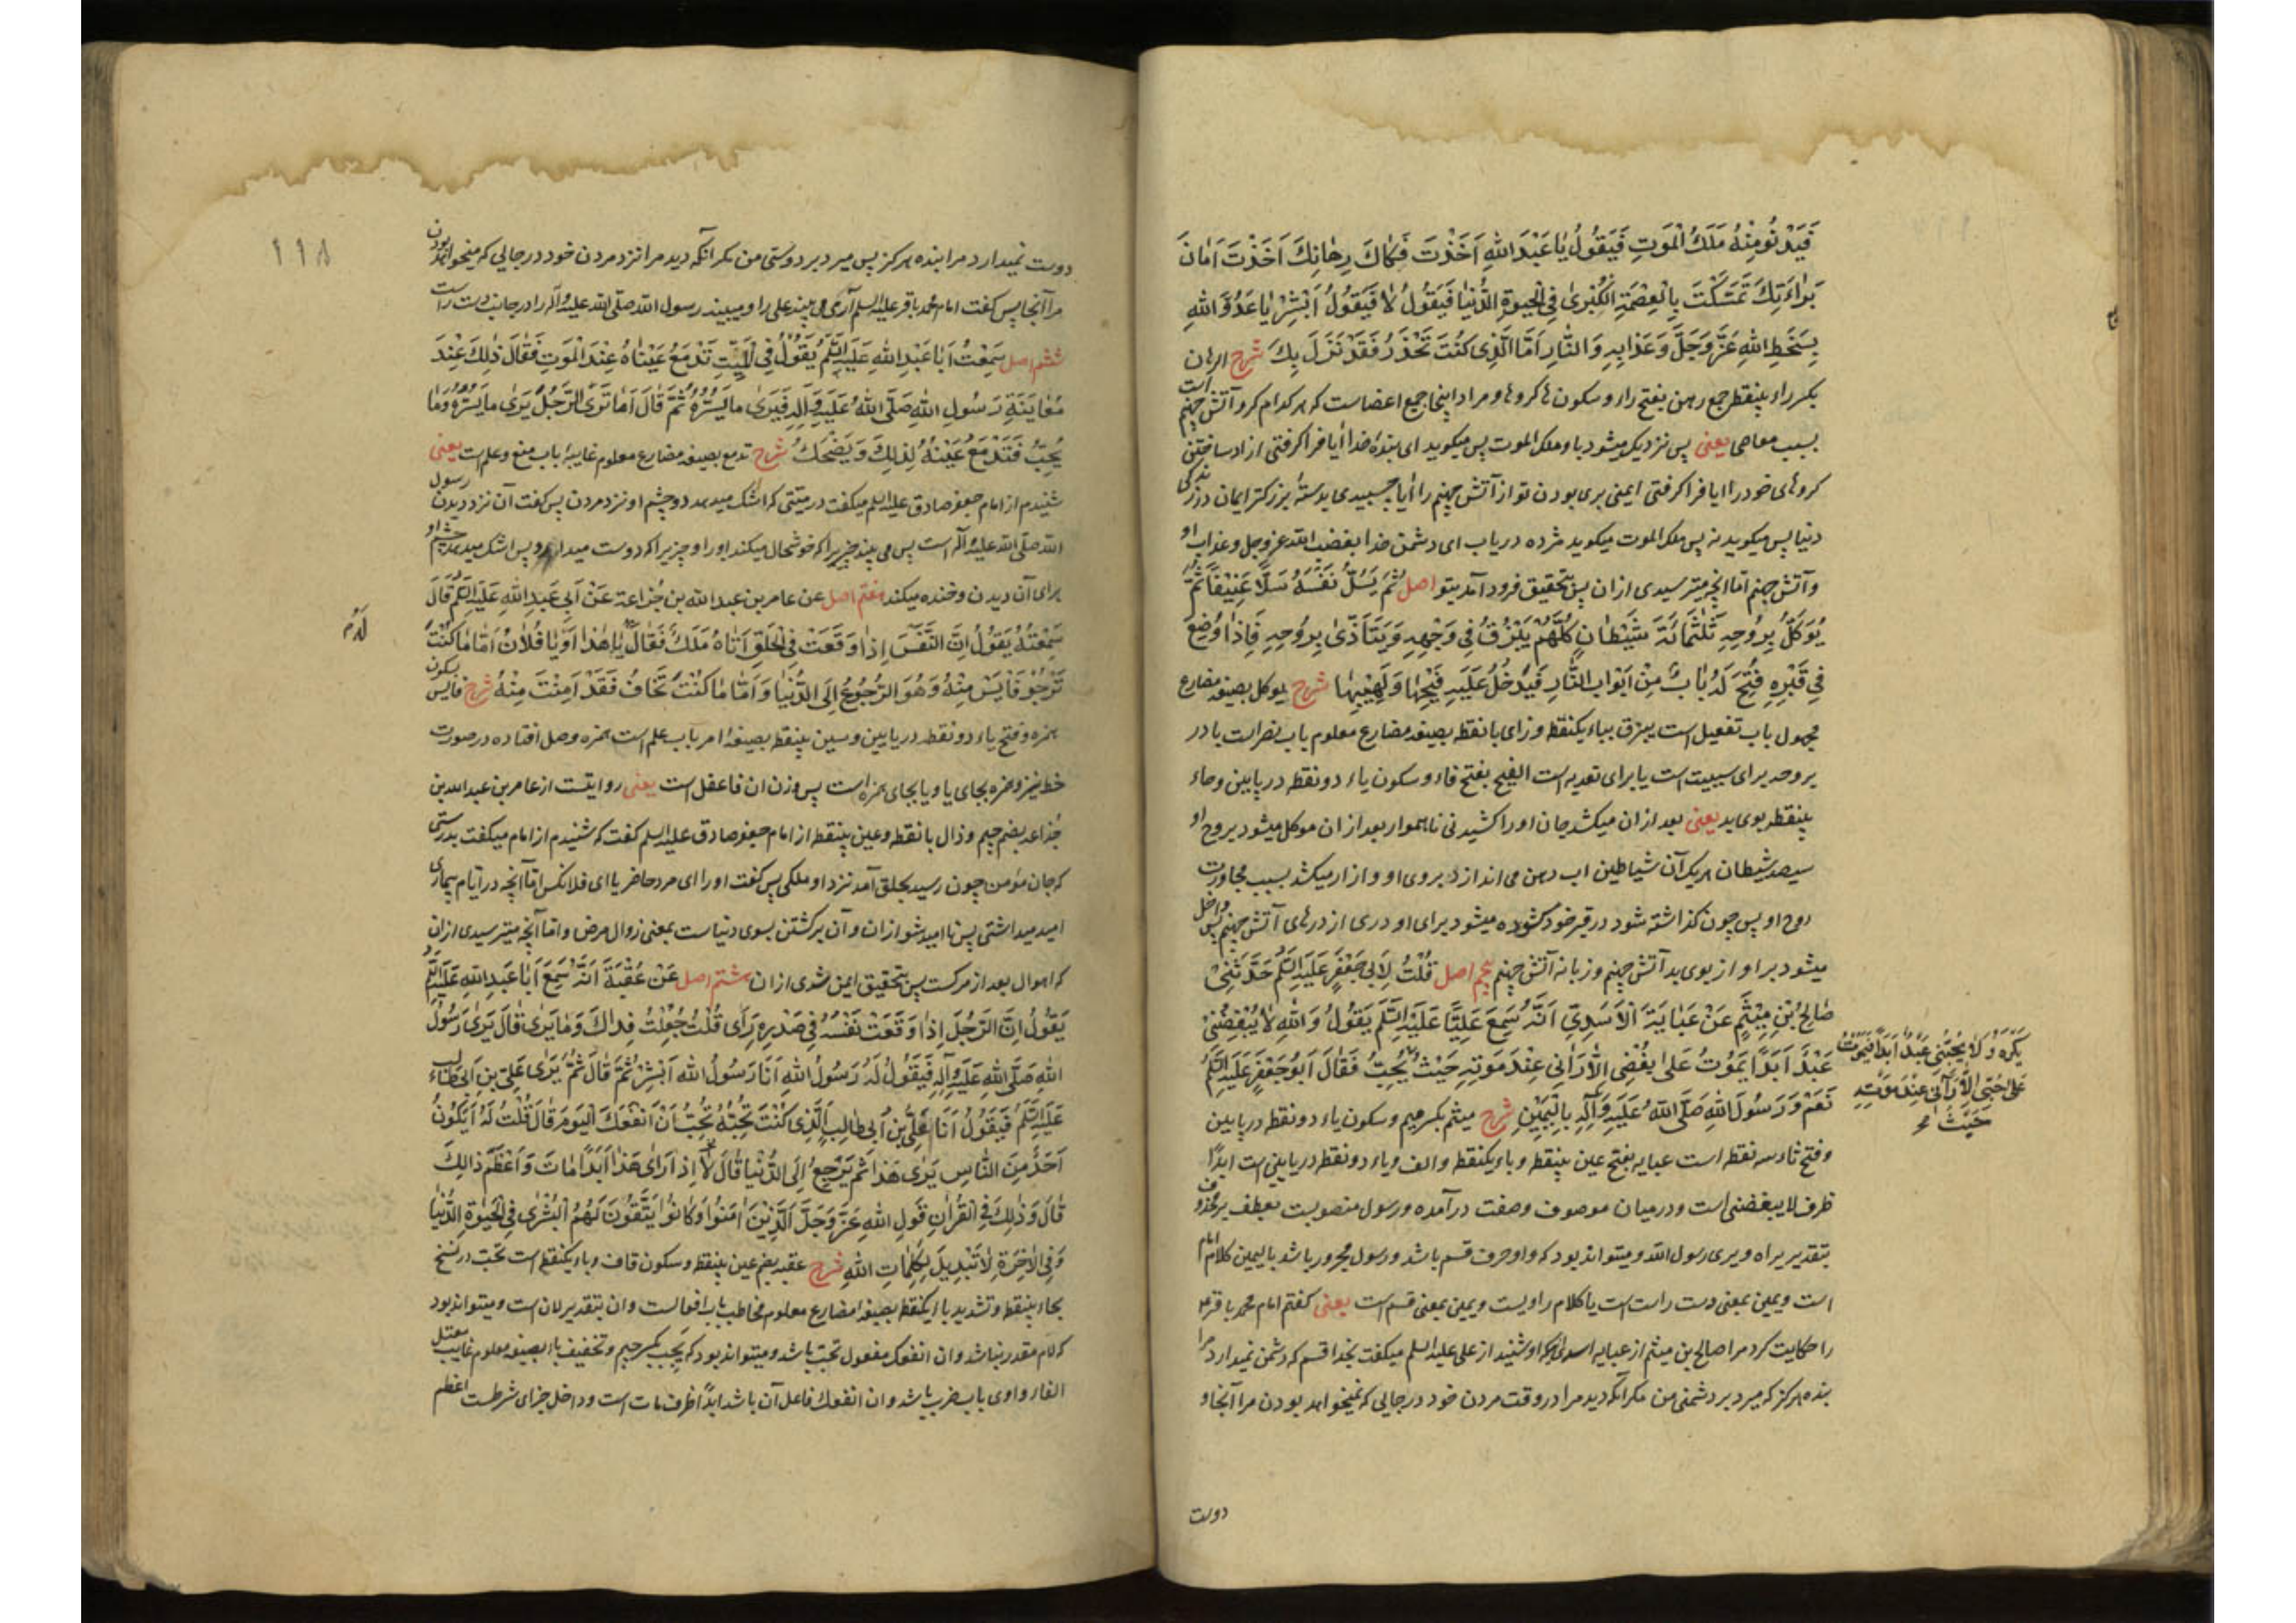 فَيَدْنُو مِنْهُ مَلَكُ الْمَوتِ فَيَقُولُ يَا عَبْدَ اللهِ اَخَذْتَ فَكَاكَ رِهَانِكَ اَخَذْتَ اَمَانَ
بَرَاءَتِكَ تَمَسَّكْتَ بِالْعِصْمَةِ الْكُبْرىٰ فِي الْحَيٰوةِ الدُّنْيَا فَيَقُولُ لَا فَيَقُولُ اَبْشِرْ يَا عَدُوَّ اللهِ
بِسَخَطِ اللهِ عَزَّ وَجَلَّ وَعَذَابِهِ وَالنَّارِ اَمَّا الَّذِى كُنْتَ تَحْذَرُ فَقَدْ نَزَلَ بِكَ شرح الرهان
بکسر راء بینقطه جمع رهن بفتح راء و سکون ها کروها و مراد اینجا جمیع اعضاست که هر کدام کرو آتش جهنم است
بسبب معاصی یعنی پس نزدیک میشود باو ملک الموت پس میکوید ای بنده خدا آیا فرا کرفتی ازاد ساختن
کروهای خود را ایا فرا کرفتی ایمنی بری بودن تو از آتش جهنم را آیا چسبیدی بدسته بزرکتر ایمان در زندکی
دنیا پس میکوید نه پس ملک الموت میکوید مژده دریاب ای دشمن خدا بغضب الله عز وجل و عذاب او
و آتش جهنم اما انچه میترسیدی ازان پس بتحقیق فرود آمد بتو اصل ثُمَّ يَسُلُّ نَفْسَهُ سَلًّا عَنِيفًا ثُمَّ
يُوَكَّلُ بِرُوحِهِ ثَلٰثُمِائَةَ شَيْطَانٍ كُلُّهُمْ يَبْزُقُ فِي وَجْهِهِ وَيَتَأَذَّىٰ بِرُوحِهِ فَاِذَا وُضِعَ
فِي قَبْرِهِ فُتِحَ لَهُ بَابٌ مِنْ اَبْوَابِ النَّارِ فَيَدْخُلُ عَلَيْهِ فَيْحُهَا وَلَهِيْبُهَا شرح یوکل بصیغه مضارع
مجهول باب تفعیل است یبزق بباء یکنقطه و زای بانقطه بصیغه مضارع معلوم باب نصر است با در
بروحه برای سببیت است یا برای تعدیه است الفیح بفتح فاء و سکون یاء دو نقطه در پایین و حاء
بینقطه بوی بد یعنی بعد ازان میکشد جان او را کشیدنی ناهموار بعد ازان موکل میشود بروح او
سیصد شیطان هر یک آن شیاطین اب دهن می اندازد بروی او و ازار میکشد بسبب مجاورت
روح او پس چون کذاشته شود در قبر خود کشوده میشود برای او دری از درهای آتش جهنم پس داخل
میشود بر او از بوی بد آتش جهنم و زبانه آتش جهنم پنجم اصل قُلْتُ لِاَبِي جَعْفَرٍ عَلَيْهِ السَّلَمُ حَدَّثَنِي
صَالِحُ بْنِ مِيْثَمٍ عَنْ عَبَايَةَ الْاَسَدِيِّ اَنَّهُ سَمِعَ عَلِيًّا عَلَيْهِ السَّلَمُ يَقُولُ وَاللهِ لَا يُبْغِضُنِي
عَبْدٌ اَبَدًا يَمُوْتُ عَلَى بُغْضِى اِلَّا رَاٰنِى عِنْدَ مَوْتِهِ حَيْثُ يُحِبُّ فَقَالَ اَبُو جَعْفَرٍ عَلَيْهِ السَّلَمُ
نَعَمْ وَرَسُولَ اللهِ صَلَّى اللهُ عَلَيْهِ وَآلِهِ بِالْيَمِيْنِ شرح میثم بکسر میم و سکون یاء دو نقطه در پایین
و فتح ثاء سه نقطه است عبایه بفتح عین بینقطه و باء یکنقطه و الف و یاء دو نقطه در پایین است ابدًا
ظرف لا یبغضنی است و در میان موصوف و صفت درآمده و رسول منصوبست بعطف بر محذوف
بتقدیر یراه و یری رسول الله و میتواند بود که واو حرف قسم باشد و رسول مجرور باشد بالیمین کلام امام
است و یمین بمعنی دست راست است یا کلام راویست و یمین بمعنی قسم است یعنی کفتم امام محمد باقر ع
را حکایت کرد مرا صالح بن میثم از عبایه اسدی که او شنید از علی علیه السلم میکفت بخدا قسم که دشمن نمیدارد مرا
بنده هرکز که میرد بر دشمنی من مکر آنکه دید مرا در وقت مردن خود در جایی که نمیخواهد بودن مرا آنجا و
يَكْرَهُ وَلَا يُحِبُّنِي عَبْدٌ اَبَدًا فَيَمُوْتُ
عَلٰى حُبِّى اِلَّا رَاٰنِى عِنْدَ مَوْتِهِ
حَيْثُ
دوست
۱۱۸
دوست نمیدارد مرا بنده هرکز پس میرد بر دوستی من مکر آنکه دید مرا نزد مردن خود در جایی که میخواهد بودن
مرا آنجا پس کفت امام محمد باقر علیه السلم آری می بیند علی را و میبیند رسول الله صلی الله علیه وآله را در جانب دست راست
ششم اصل سَمِعْتُ اَبَا عَبْدِ اللهِ عَلَيْهِ السَّلَمُ يَقُوْلُ فِي الْمَيِّتِ تَدْمَعُ عَيْنَاهُ عِنْدَ الْمَوتِ فَقَالَ ذٰلِكَ عِنْدَ
مُعَايَنَةِ رَسُولِ اللهِ صَلَّى اللهُ عَلَيْهِ وَآلِهِ فَيَرَى مَا يَسُرُّهُ ثُمَّ قَالَ اَمَا تَرَى الرَّجُلَ يَرَى مَا يَسُرُّهُ وَمَا
يُحِبُّ فَتَدْمَعُ عَيْنُهُ لِذٰلِكَ وَيَضْحَكُ شرح تدمع بصیغه مضارع معلوم غایبه باب منع و علم است یعنی
شنیدم از امام جعفر صادق علیه السلم میکفت در میتی که اشک میدهد دو چشم او نزد مردن پس کفت آن نزد دیدن رسول
الله صلی الله علیه وآله است پس می بیند چیزیرا که خوشحال میکند او را و چیزیرا که دوست میدارد پس اشک میدهد چشم او
برای آن دیدن و خنده میکند هفتم اصل عن عامر بن عبد الله بن جذاعة عَنْ اَبِي عَبْدِ اللهِ عَلَيْهِ السَّلَمُ قَالَ
سَمِعْتُهُ يَقُوْلُ اِنَّ النَّفْسَ اِذَا وَقَعَتْ فِي الْحَلْقِ اَتَاهُ مَلَكٌ فَقَالَ يَا هٰذَا اَوْ يَا فُلَانُ اَمَّا مَا كُنْتَ
تَرْجُوْ فَايْئَسْ مِنْهُ وَهُوَ الرُّجُوْعُ اِلَى الدُّنْيَا وَاَمَّا مَا كُنْتَ تَخَافُ فَقَدْ اَمِنْتَ مِنْهُ شرح فایس بسکون
همزه و فتح یاء دو نقطه در پایین و سین بینقطه بصیغه امر باب علم است همزه وصل افتاده در صورت
خط نیز و همزه بجای یا و یا بجای همزه است پس وزن ان فاعفل است یعنی روایتست از عامر بن عبد الله بن
جذاعه بضم جیم و ذال بانقطه و عین بینقطه از امام جعفر صادق علیه السلم کفت که شنیدم از امام میکفت بدرستی
که جان مؤمن چون رسید بحلق آمد نزد او ملکی پس کفت او را ای مرد حاضر یا ای فلانکس اما آنچه در ایام بیماری
امید میداشتی پس نا امید شو ازان و آن برکشتن بسوی دنیاست بمعنی زوال مرض و اما آنچه میترسیدی ازان
که اهوال بعد از مرکست پس بتحقیق ایمن شدی ازان هشتم اصل عَنْ عُقْبَةَ اَنَّهُ سَمِعَ اَبَا عَبْدِ اللهِ عَلَيْهِ السَّلَمُ
يَقُوْلُ اِنَّ الرَّجُلَ اِذَا وَقَعَتْ نَفْسُهُ فِي صَدْرِهِ رَاٰى قُلْتُ جُعِلْتُ فِدَاكَ وَمَا يَرٰى قَالَ يَرٰى رَسُوْلَ
اللهِ صَلَّى اللهِ عَلَيْهِ وَآلِهِ فَيَقُوْلُ لَهُ رَسُوْلُ اللهِ اَنَا رَسُوْلُ اللهِ اَبْشِرْ ثُمَّ قَالَ ثُمَّ يَرٰى عَلِيَّ بْنِ اَبِي طَالِبٍ
عَلَيْهِ السَّلَمُ فَيَقُوْلُ اَنَا عَلِيُّ بْنُ اَبِي طَالِبِ الَّذِى كُنْتَ تُحِبُّهُ تُحِبُّ اَنْ اَنْفَعَكَ الْيَوْمَ قَالَ قُلْتُ لَهُ اَيَكُوْنُ
اَحَدٌ مِنَ النَّاسِ يَرٰى هَذَا ثُمَّ يَرْجِعُ اِلَى الدُّنْيَا قَالَ لَا اِذَا رَاٰى هَذَا اَبَدًا مَاتَ وَاَعْظَمَ ذٰلِكَ
قَالَ وَذٰلِكَ فِي الْقُرْاٰنِ قَوْلِ اللهِ عَزَّ وَجَلَّ اَلَّذِيْنَ اٰمَنُوْا وَكَانُوْا يَتَّقُوْنَ لَهُمُ الْبُشْرٰى فِي الْحَيٰوةِ الدُّنْيَا
وَفِي الْاٰخِرَةِ لَا تَبْدِيْلَ لِكَلِمَاتِ اللهِ شرح عقبه بضم عین بینقطه و سکون قاف و باء یکنقطه است تحب در نسخ
بحاء بینقطه و تشدید باء یکنقطه بصیغه مضارع معلوم مخاطب باب افعالست و ان بتقدیر لان است و میتواند بود
که لام مقدر نباشد و ان انفعک مفعول تحب باشد و میتواند بود که یجب بکسر جیم و تخفیف باء بصیغه معلوم غایب معتل
الفاء واوی باب ضرب باشد و ان انفعک فاعل آن باشد ابدًا ظرف مات است و داخل جزای شرطست اعظم